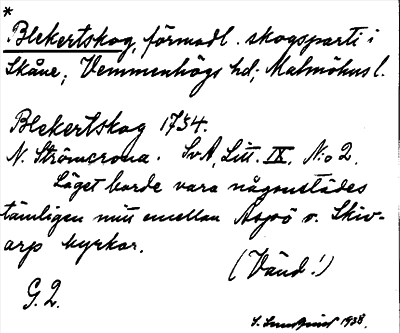 *
Blekertskog, förmodl. skogsparti i
Skåne; Vemmenhögs hd; Malmöhus l.
Blekertskog 1754.
N. Strömcrona. SvA, Litt. IX, N:o 2.
Läget borde vara någonstädes
tämligen mitt emellan Aspö o. Skiv-
arp kyrkor.
(Vänd!)
G. 2.
S. Lundquist 1938.